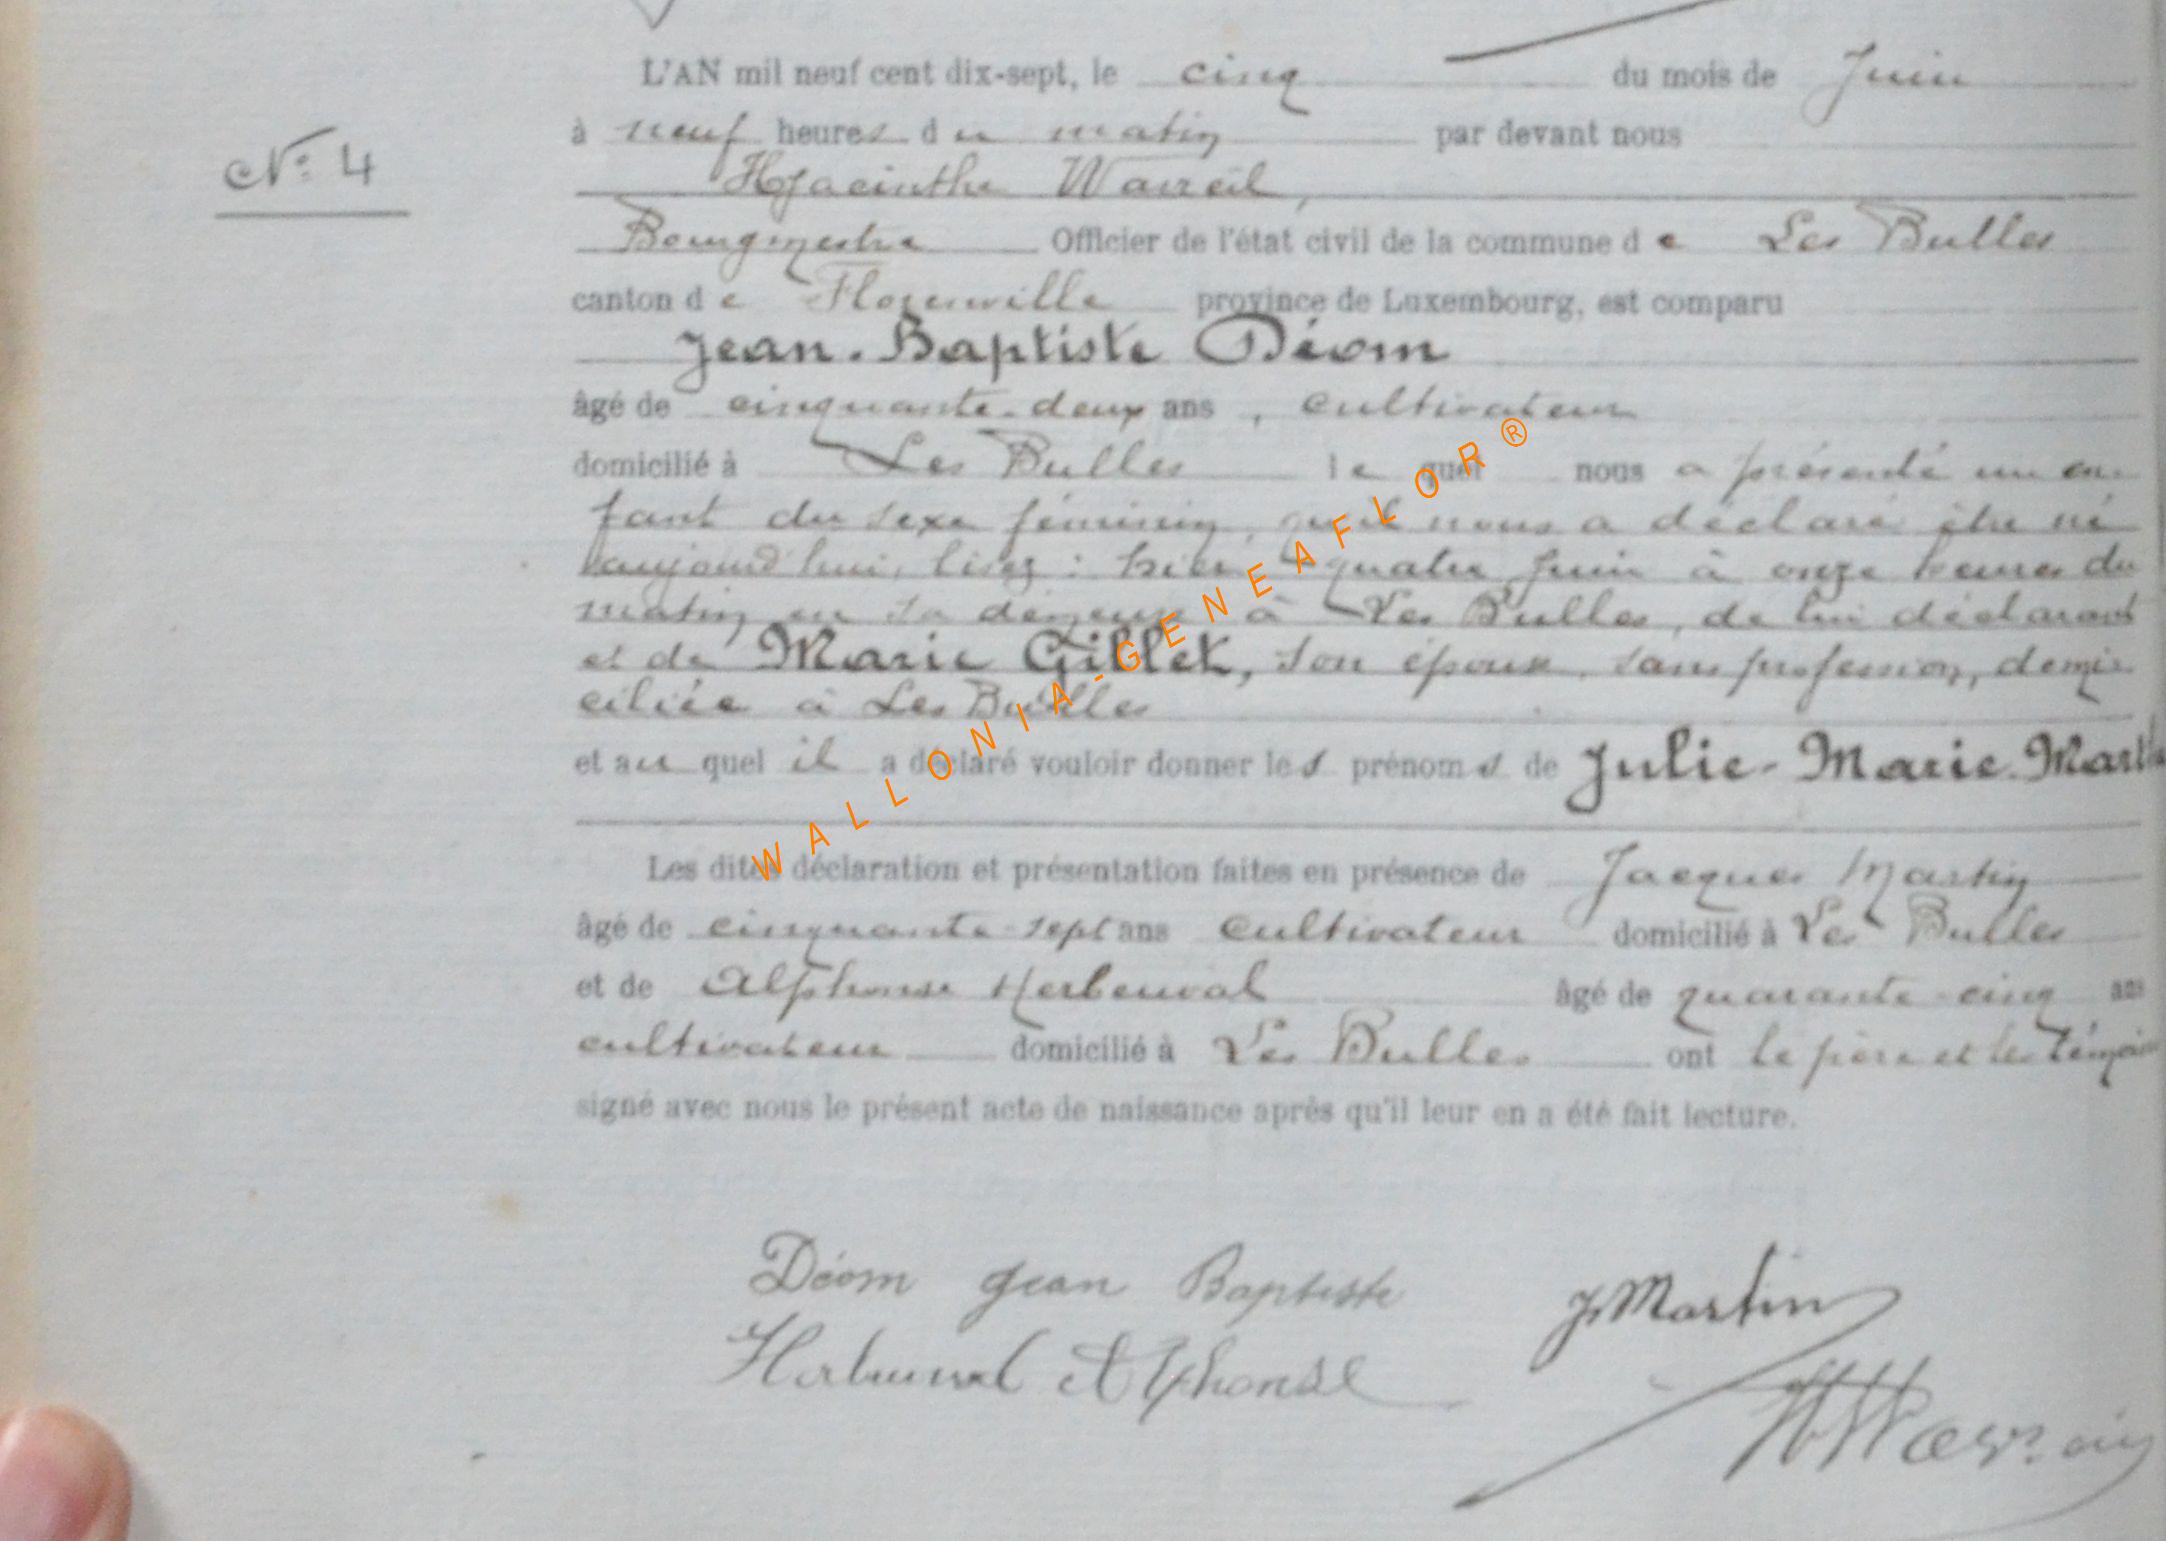 L'AN mil neuf cent dix-sept, le cinq du mois de Juin
N° 4
à neuf heures du matin par devant nous
Hyacinthe
Bourgmestre Officier de l'état civil de la commune de Les Bulles
canton de Florenville province de Luxembourg, est comparu
Jean-Baptiste Déom
âgé de cinquante-deux ans, cultivateur
domicilié à Les Bulles lequel nous a présenté un en-
fant du sexe féminin, qu'il nous a déclaré être né
aujourd'hui, lisez : hier, quatre Juin à onze heures du
matin, en sa demeure à Les Bulles, de lui déclarant
et de Marie Gillet, son épouse, sans profession, domi-
ciliée à Les Bulles
et auquel il a déclaré vouloir donner les prénoms de Julie-Marie
Les dites déclaration et présentation faites en présence de Jacques Martin
âgé de cinquante-sept ans cultivateur domicilié à Les Bulles
et de Alphonse Herbeuval âgé de quarante-cinq ans
cultivateur domicilié à Les Bulles ont le père et les témoins
signé avec nous le présent acte de naissance après qu'il leur en a été fait lecture.
Déom Jean Baptiste J. Martin
Herbeuval Alphonse
WALLONIA-GENEAFLOR®